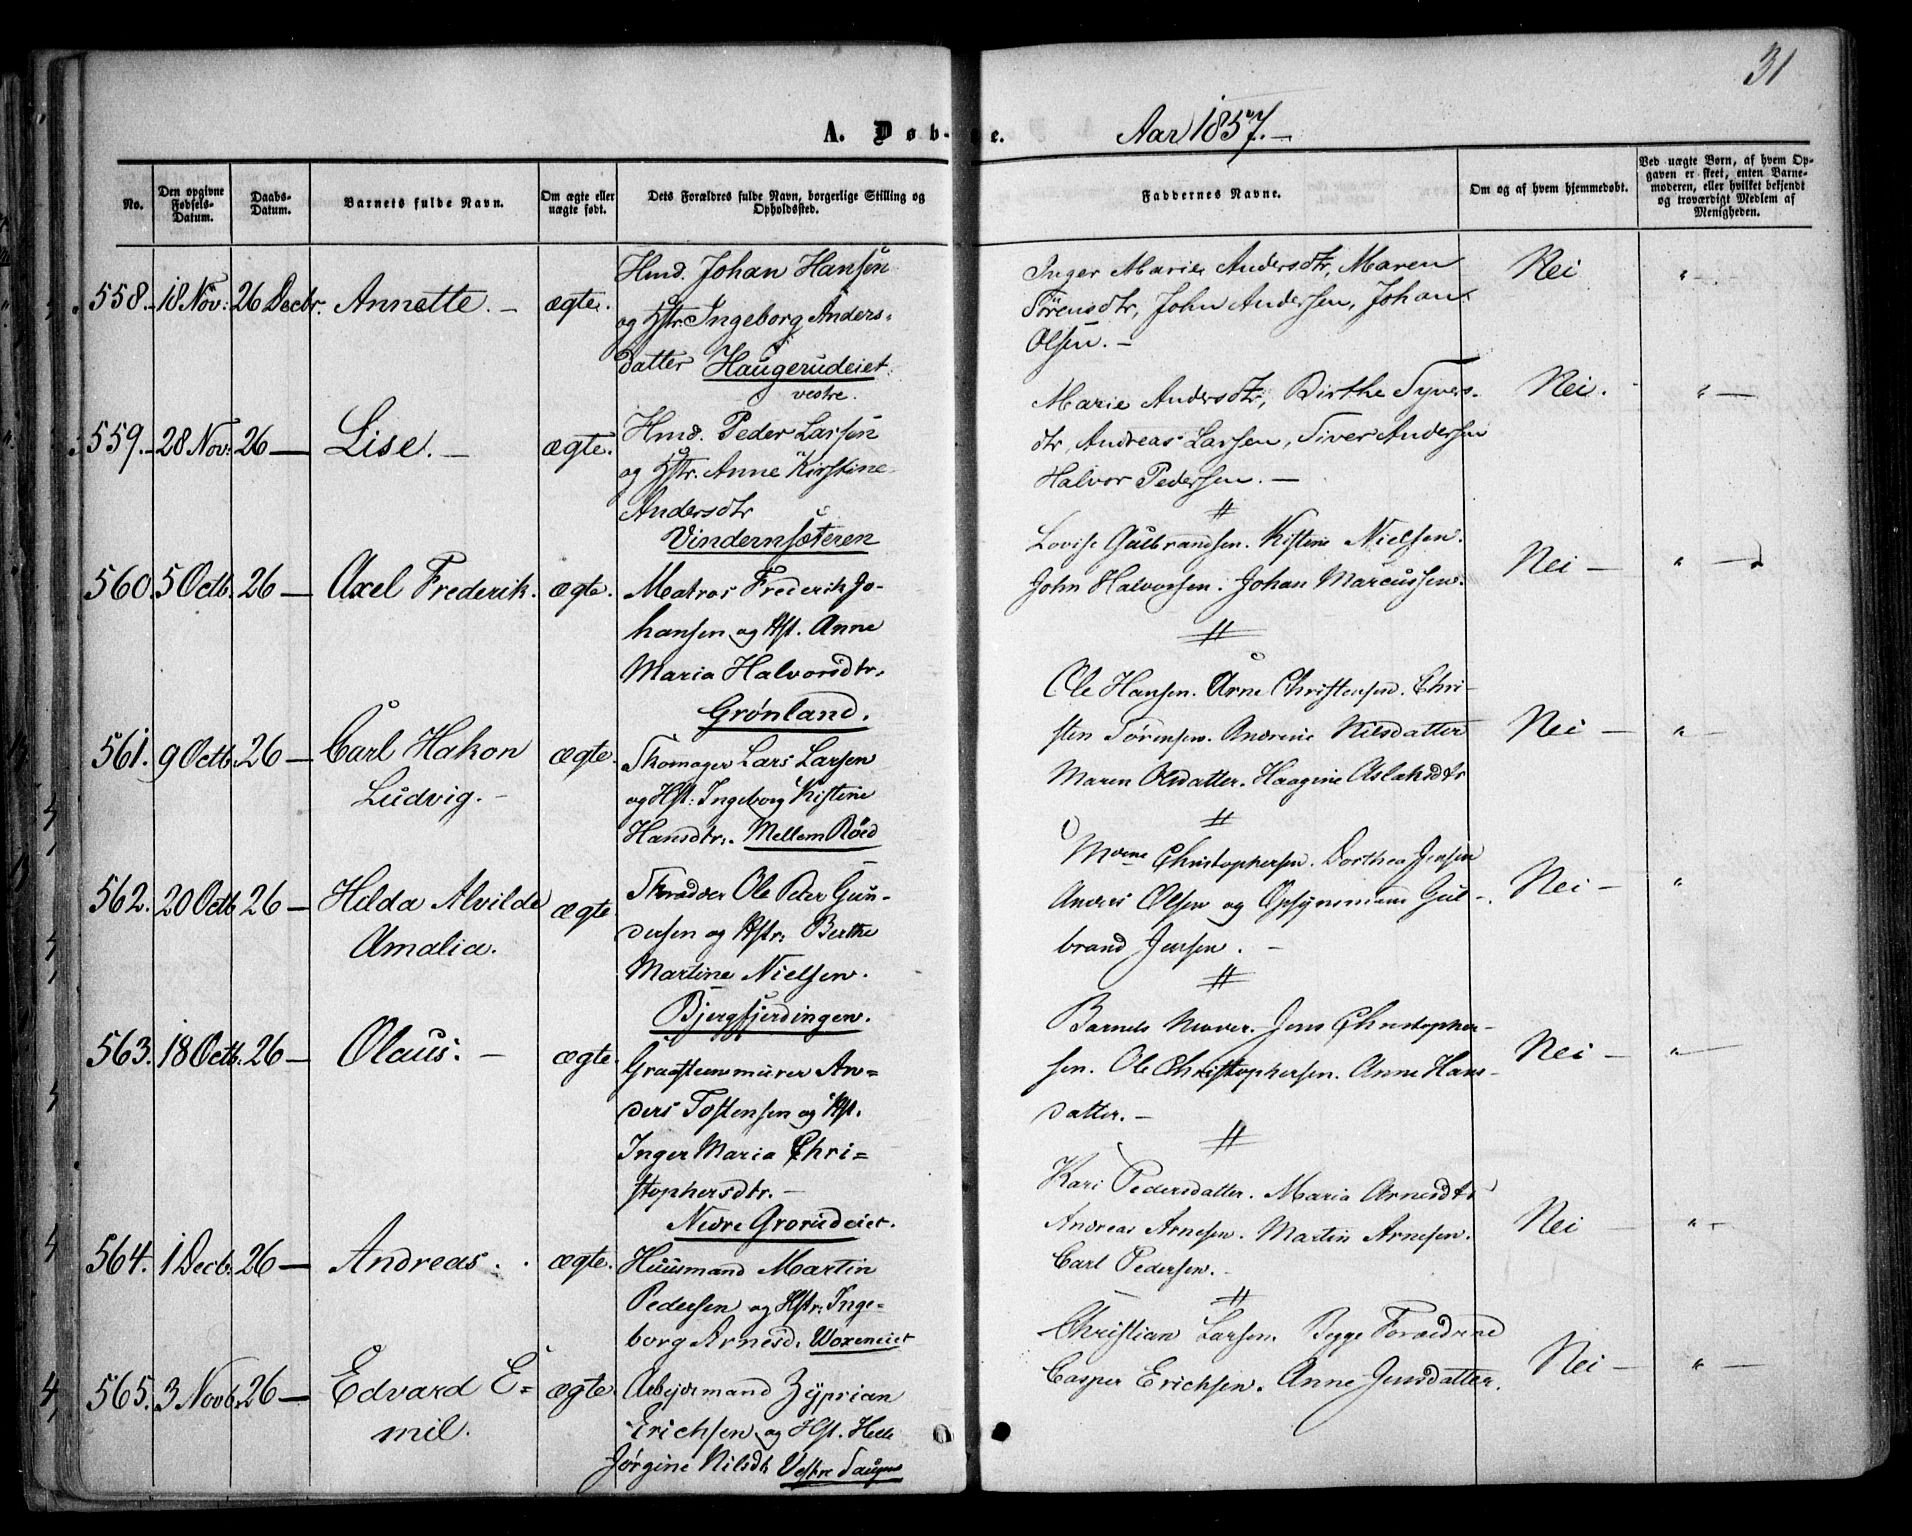 31
A. Døb-
e.
Aar 1857.-
No.
Den opgivne Fødsels-Datum.
Daabs-Datum.
Barnets fulde Navn.
Om ægte eller uægte født.
Dets Forældres fulde Navn, borgerlige Stilling og Opholdssted.
Faddernes Navne.
Om og af hvem hjemmedøbt.
Ved uægte Børn, af hvem Opgaven er skeet, enten Barnemoderen, eller hvilket bekjendt og troværdigt Medlem af Menigheden.
558. 18 Nov: 26 Decbr. Annette. - ægte.
Hmd. Johan Hansen
og Hstr. Ingeborg Anders-
datter Haugerudeiet
vestre.
Inger Marie Andersdtr, Maren
Sörensdtr, John Andersen, Johan
Olsen. -
Nei " -
559. - 28 Nov: 26 - Lise. - ægte.
Hmd. Peder Larsen
og Hstr. Anne Kirstine
Andersdtr
Vindernsæteren
Marie Andersdtr, Birthe Syvers-
dtr, Andreas Larsen, Siver Andersen
Halvor Pedersen. -
Nei. " -
560. 5 Octb. 26 - Axel Frederik. ægte.
Matros Frederik Jo-
hansen og Hst. Anne
Maria Halvorsdtr.
Grønland.
Lovise Gulbrandsen. Kistine Nielsen.
John Halvorsen. Johan Marcussen.
Nei - " -
561. 9 Octb. 26 - Carl Hakon
Ludvig. - ægte.
Skomager Lars Larsen
og Hst: Ingeborg Kistine
Hansdtr. Mellem Röed
Ole Hansen. Arne Christensen. Chri-
sten Sørensen. Andrine Nilsdatter
Maren Olsdatter. Haagine Aslaksdtr
Nei - " -
562. 20 Octb 26 - Helda Alvilde
Amalia. ægte
Skrædder Ole Peter Gun-
dersen og Hstr: Berthe
Martine Nielsen.
Bjergfjerdingen.
Christophersen. Dorthea Jensen
Andreas Olsen og Gul-
brand Jensen. -
Nei - "
563. 18 Octb. 26 - Olaus. - ægte.
Graasteensmurer An-
ders Tostensen og Hst.
Inger Maria Chri-
stophersdtr. -
Nedre Grorudeiet.
Barnets Moder. Jens Christopher-
sen. Ole Christophersen. Anne Hans-
datter. -
Nei - " -
564. 1 Decb. 26 - Andreas. ægte.
Huusmand Martin
Pedersen og Hstr: Inge-
borg Arnesd. Woxeneiet
Kari Pedersdatter. Maria Arnesdtr
Andreas Arnesen. Martin Arnesen.
Carl Pedersen. -
Nei - " -
565. 3 Novb. 26 - Edvard E-
mil. ægte.
Arbejdsmand Zyprian
Erichsen og Hst. Helle
Jørgine Nilsdt. Vestre
Christian Larsen. Begge Forældrene
Casper Erichsen. Anne Jensdatter.
Nei - " -